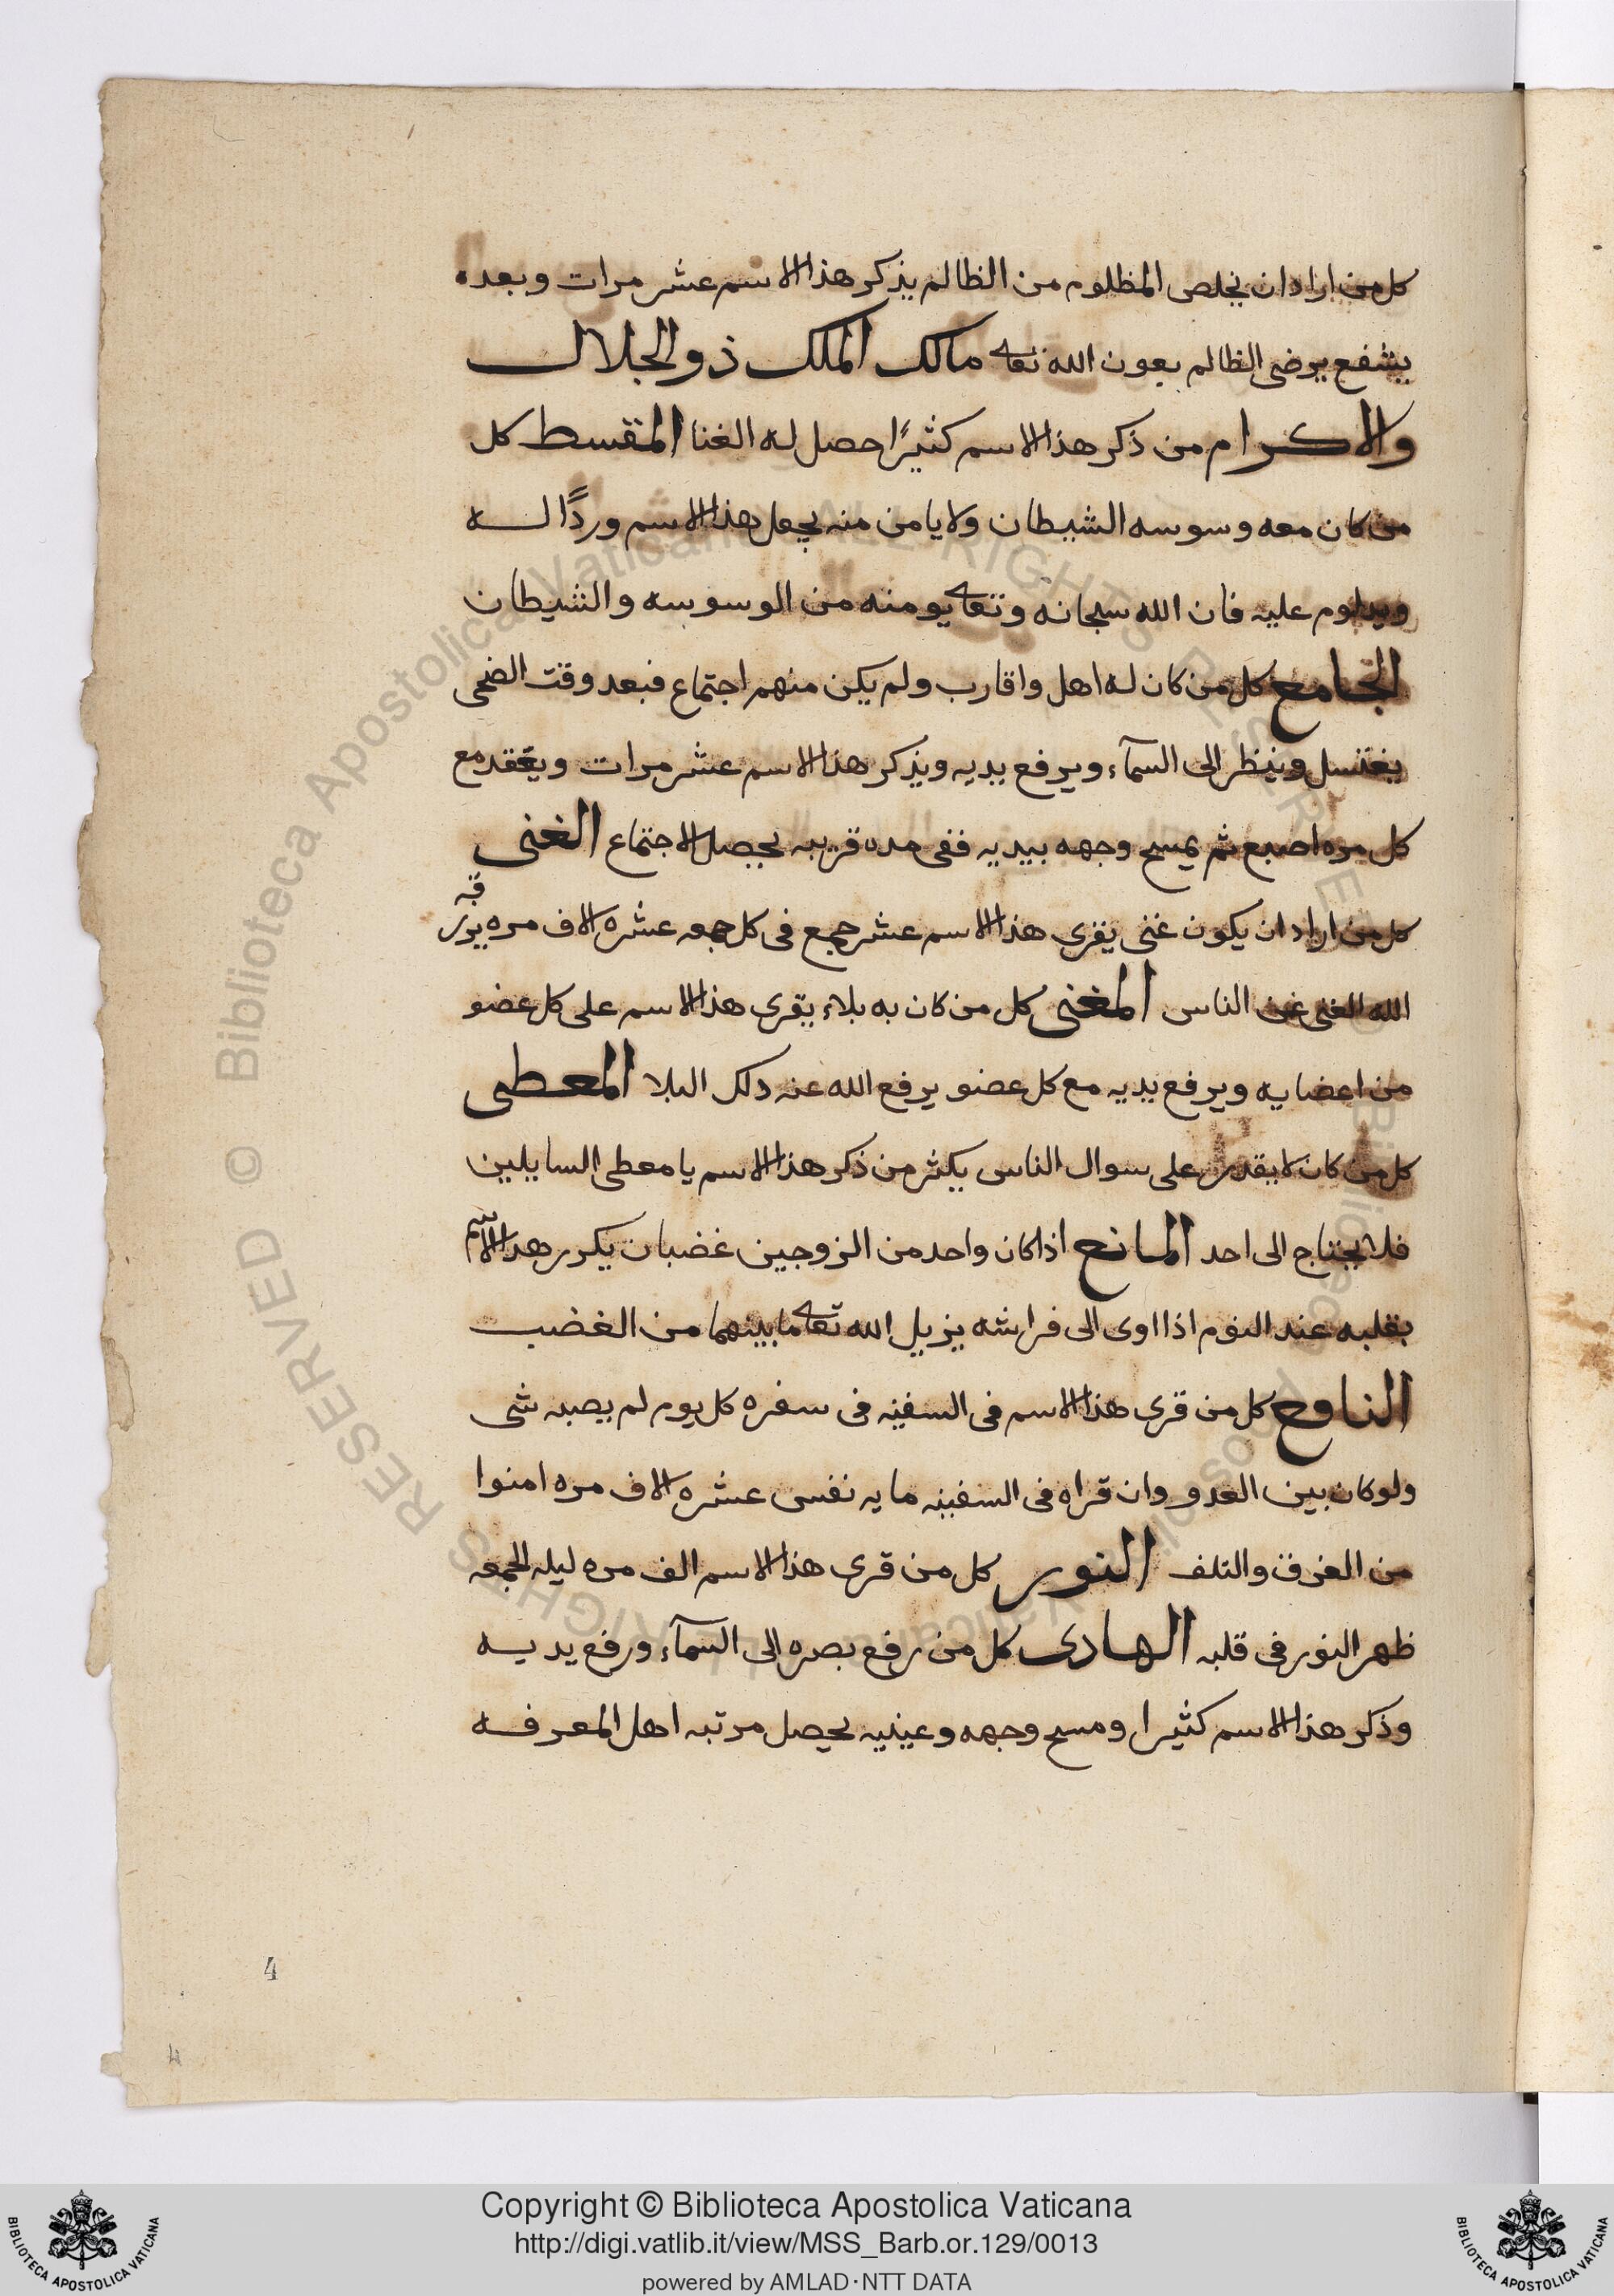 كل من اراد ان يخلص المظلوم من الظالم يذكر هذا الاسم عشر مرات وبعده
يشفع يرضى الظالم بعون الله تعا مالك الملك ذو الجلال
والاكرام من ذكر هذا الاسم كثيرًا حصل له الغنا المقسط كل
من كان معه وسوسه الشيطان ولا يامن منه يجعل هذا الاسم وردًا له
ويداوم عليه فان الله سبحانه وتعا يومنه من الوسوسه والشيطان
الجامع كل من كان له اهل واقارب ولم يكن منهم اجتماع فبعد وقت الضحى
يغتسل وينظر الى السمآء ويرفع يديه ويذكر هذا الاسم عشر مرات ويعقد مع
كل مره اصبع ثم يمسح وجهه بيديه ففى مده قريبه يحصل الاجتماع الغنى
كل من اراد ان يكون غنى يقرى هذا الاسم عشر جمع فى كل جمعه عشره الاف مره يرزقه
الله الغنى عن الناس المغنى كل من كان به بلاء يقرى هذا الاسم على كل عضو
من اعضايه ويرفع يديه مع كل عضو يرفع الله عنه دلك البلا المعطى
كل من كان لا يقدر على سوال الناس يكثر من ذكر هذا الاسم يا معطى السايلين
فلا يحتاج الى احد المانع اذا كان واحد من الزوجين غضبان يكرر هدا الاسم
بقلبه عند النوم اذا اوى الى فراشه يزيل الله تعا ما بينهما من الغضب
النافع كل من قرى هذا الاسم فى السفينه فى سفره كل يوم لم يصبه شى
ولو كان بين العدو وان قراه فى السفينه مايه نفس عشره الاف مره امنوا
من الغرق والتلف النور كل من قرى هذا الاسم الف مره ليله الجمعه
ظهر النور فى قلبه الهادى كل من رفع بصره الى السمآء ورفع يديه
وذكر هذا الاسم كثيرا ومسح وجهه وعينيه يحصل مرتبه اهل المعرفه
4
4
Copyright © Biblioteca Apostolica Vaticana
http://digi.vatlib.it/view/MSS_Barb.or.129/0013
powered by AMLAD·NTT DATA
BIBLIOTECA APOSTOLICA VATICANA
BIBLIOTECA APOSTOLICA VATICANA
© Biblioteca Apostolica Vaticana ALL RIGHTS RESERVED
© Biblioteca Apostolica Vaticana ALL RIGHTS RESERVED